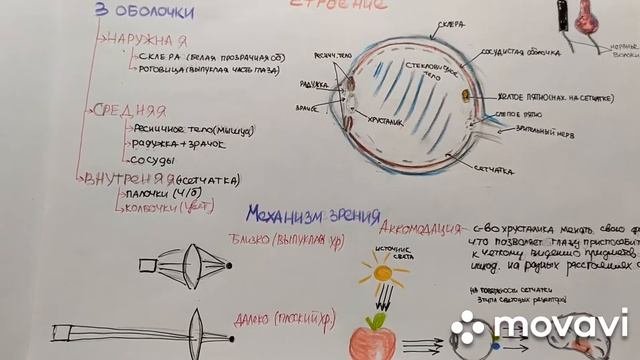 3 ОБОЛОЧКИ
НАРУЖНАЯ
СКЛЕРА (БЕЛАЯ ПРОЗРАЧНАЯ ОБ)
РОГОВИЦА (ВЫПУКЛАЯ ЧАСТЬ ГЛАЗА)
СРЕДНЯЯ
РЕСНИЧНОЕ ТЕЛО (МЫШЦА)
РАДУЖКА + ЗРАЧОК
СОСУДЫ
ВНУТРЕНЯЯ (СЕТЧАТКА)
ПАЛОЧКИ (Ч/Б)
КОЛБОЧКИ (ЦВЕТ)
СТРОЕНИЕ
СКЛЕРА
РЕСНИЧ. ТЕЛО
СОСУДИСТАЯ ОБОЛОЧКА
СТЕКЛОВИДНОЕ
ТЕЛО
РАДУЖКА
ЗРАЧОК
ХРУСТАЛИК
ЖЕЛТОЕ ПЯТНО (НАХ. НА СЕТЧАТКЕ)
СЛЕПОЕ ПЯТНО
ЗРИТЕЛЬНЫЙ НЕРВ
СЕТЧАТКА
НЕРВНЫЕ
МЕХАНИЗМ ЗРЕНИЯ
БЛИЗКО (ВЫПУКЛАЯ ХР)
ДАЛЕКО (ПЛОСКИЙ ХР.)
АККОМОДАЦИЯ - С-ВО ХРУСТАЛИКА МЕНЯТЬ СВОЮ
ЧТО ПОЗВОЛЯЕТ ГЛАЗУ ПРИСПОСАБИ
К ЧЕТКОМУ ВИДЕНИЮ ПРЕДМЕТОВ,
НАХОД. НА РАЗНЫХ РАССТОЯНИЯХ
ИСТОЧНИК
СВЕТА
НА ПОВЕРХНОСТИ СЕТЧАТКИ
movavi